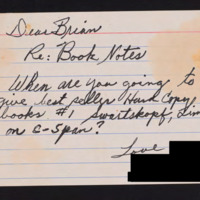 Dear Brian
Re: Book Notes
When are you going to
give best seller Hard Copy
books #1 Swartskopf, Lim
on C-Span?
Love